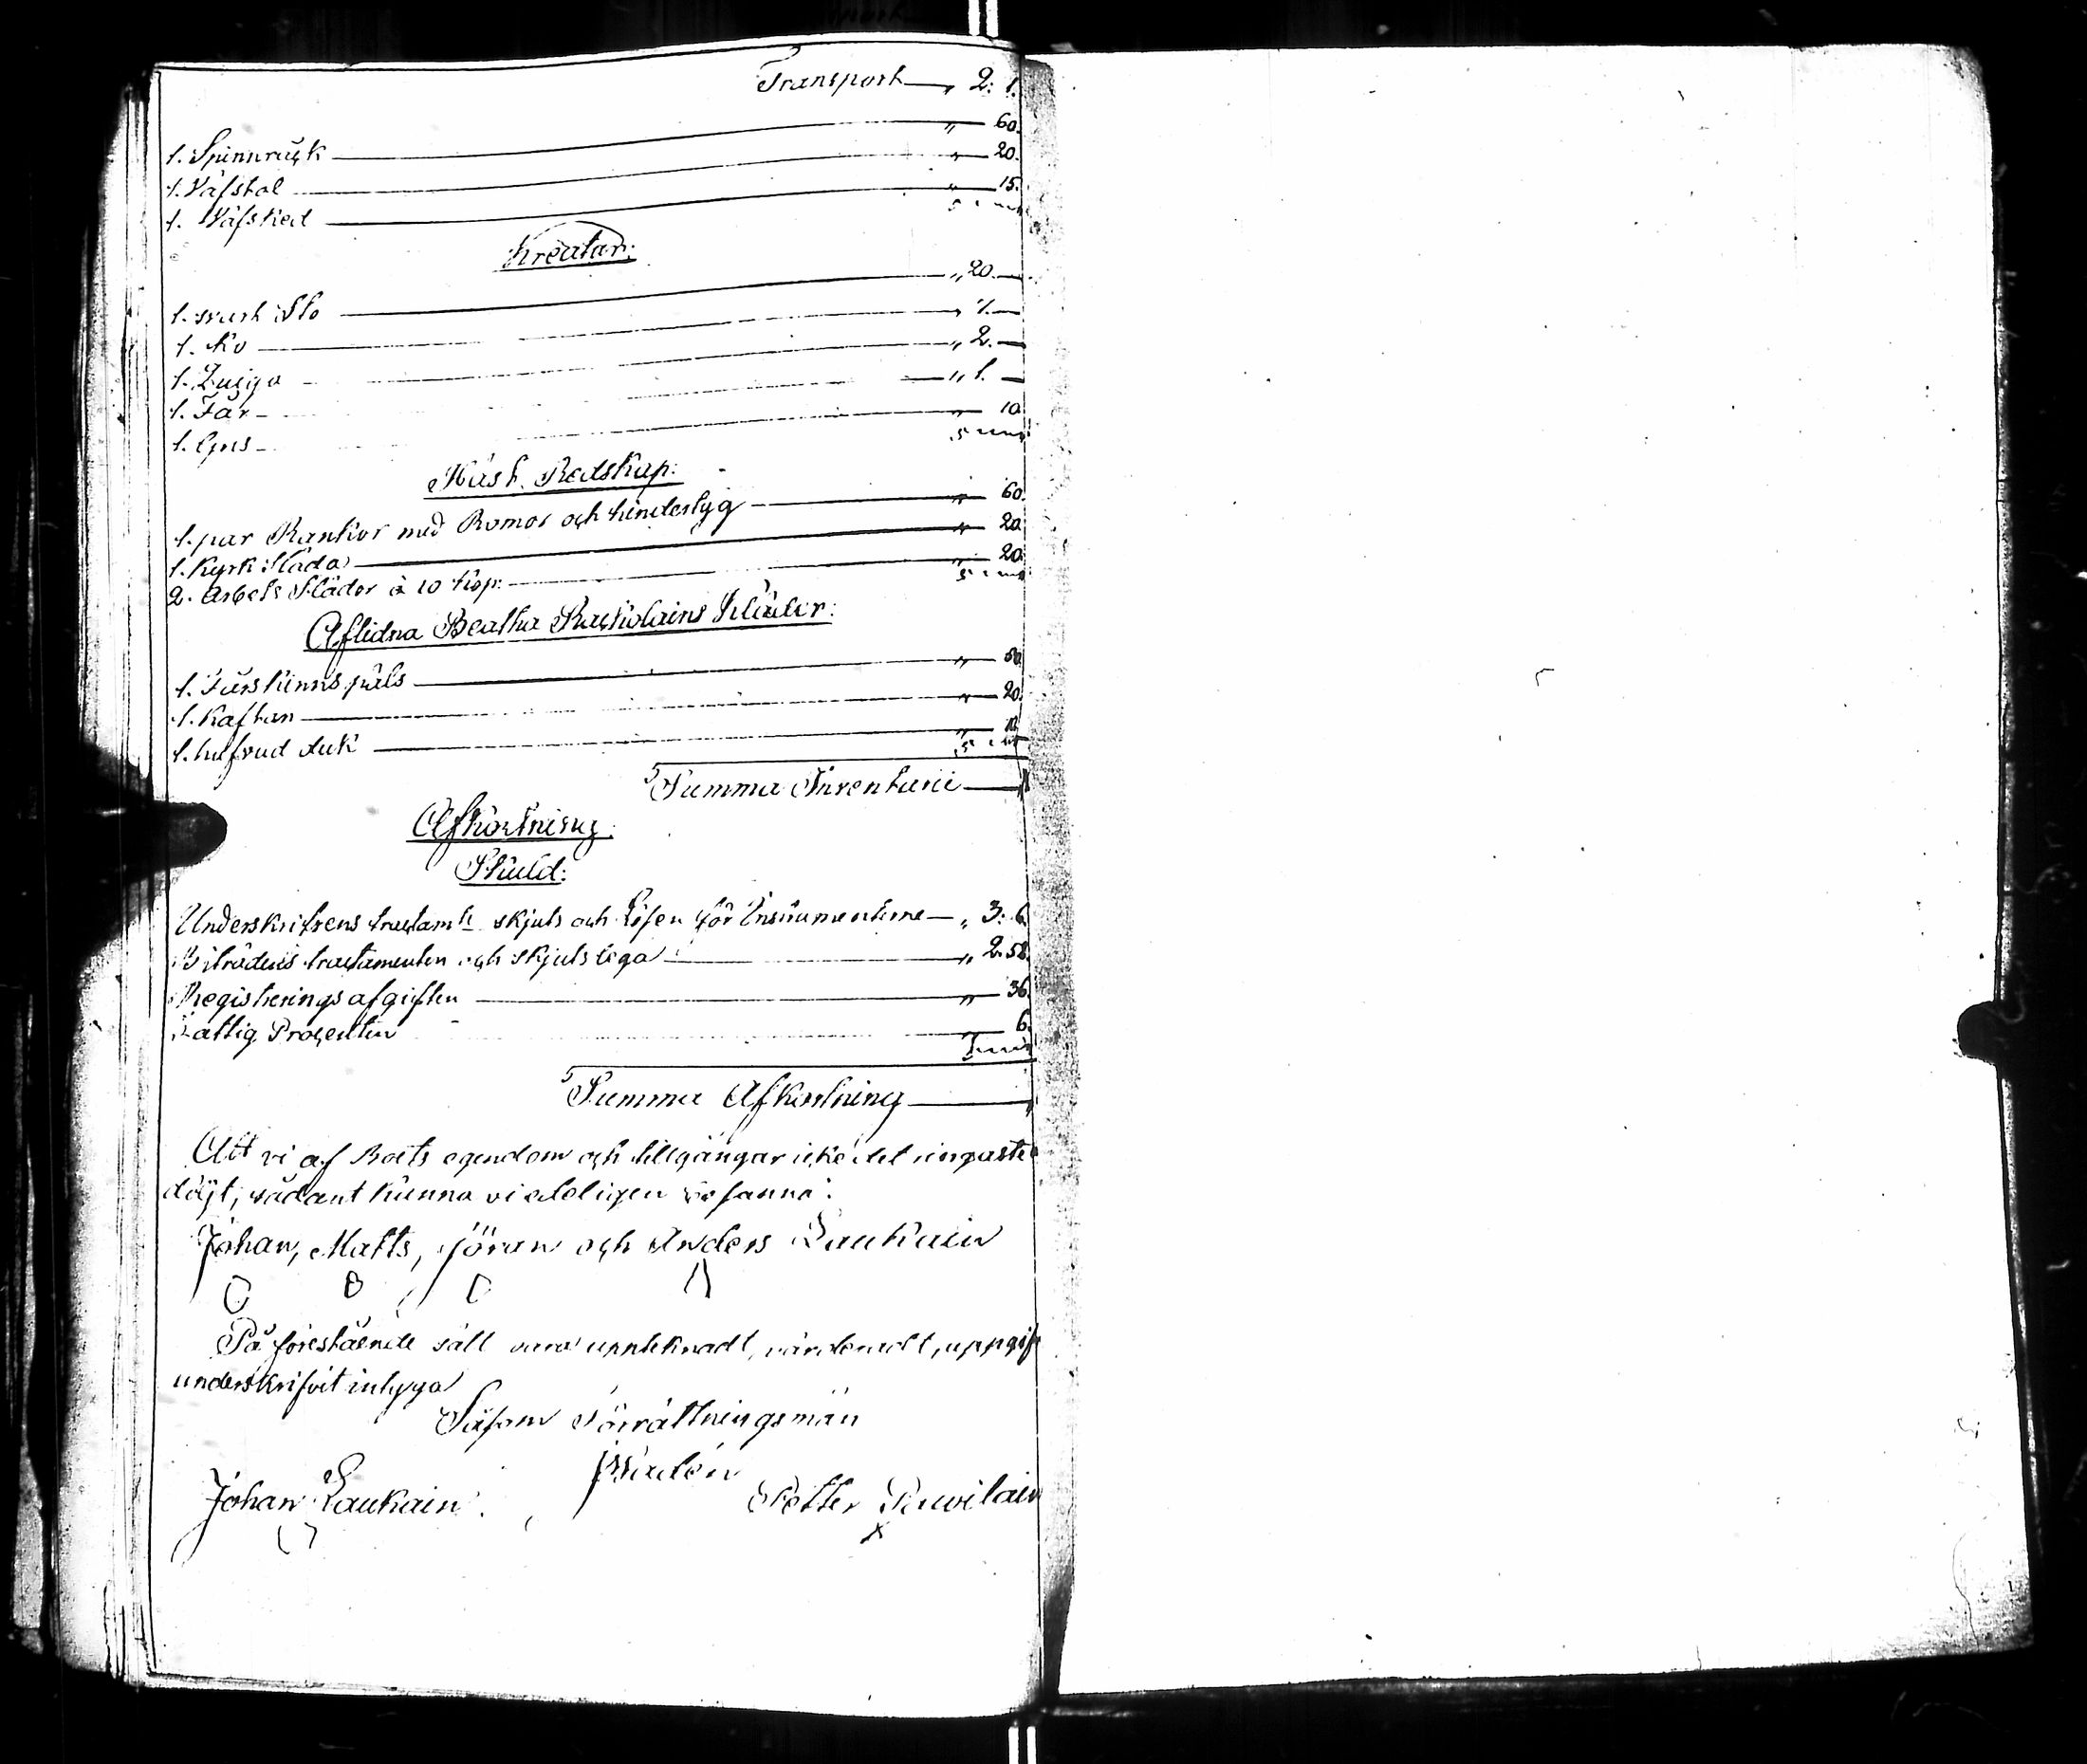 Transport „ 2: 1.
1. Spinnråck „ 60.
1. Väfstol „ 20.
1. Väfsked „ 15.
Kreatur:
1. svart Sto „ 20. —
1. Ko „ 7. —
1. Quiga „ 2. —
1. Får „ 1. —
1. Gris „ 10
Häst Redskap:
1. par Kankor med Bomor och tindertyg „ 60.
1. Kyrk Släda „ 20.
2. Arbets Slädor à 10 Kop: „ 20.
Aflidna Beatha Kläder:
1. Fårskinns päls „ 50
1. Kaftan „ 20.
1. hufvud duk „
Summa Inventarii
Afkortning:
Skuld:
Underskrifvens tractamte skjuts och Lösen för Instrumenterne „ 3: 6.
Biträdets tractamenten och skjutslega „ 2. 58.
Registreringsafgiften „ 36.
Fattig Procenten 6.
Summa Afkortning
Att vi af Boets egendom och tillgångar icke det ringaste
döljt, sådant kunna vi edeligen besanna:
Johan, Matts, Jöran och Anders Laukain
På förestående sätt vara uppteknadt, värderadt, uppgif
underskrifvit intyga
Såsom Förrättningsmän
Johan Laukain. Petter